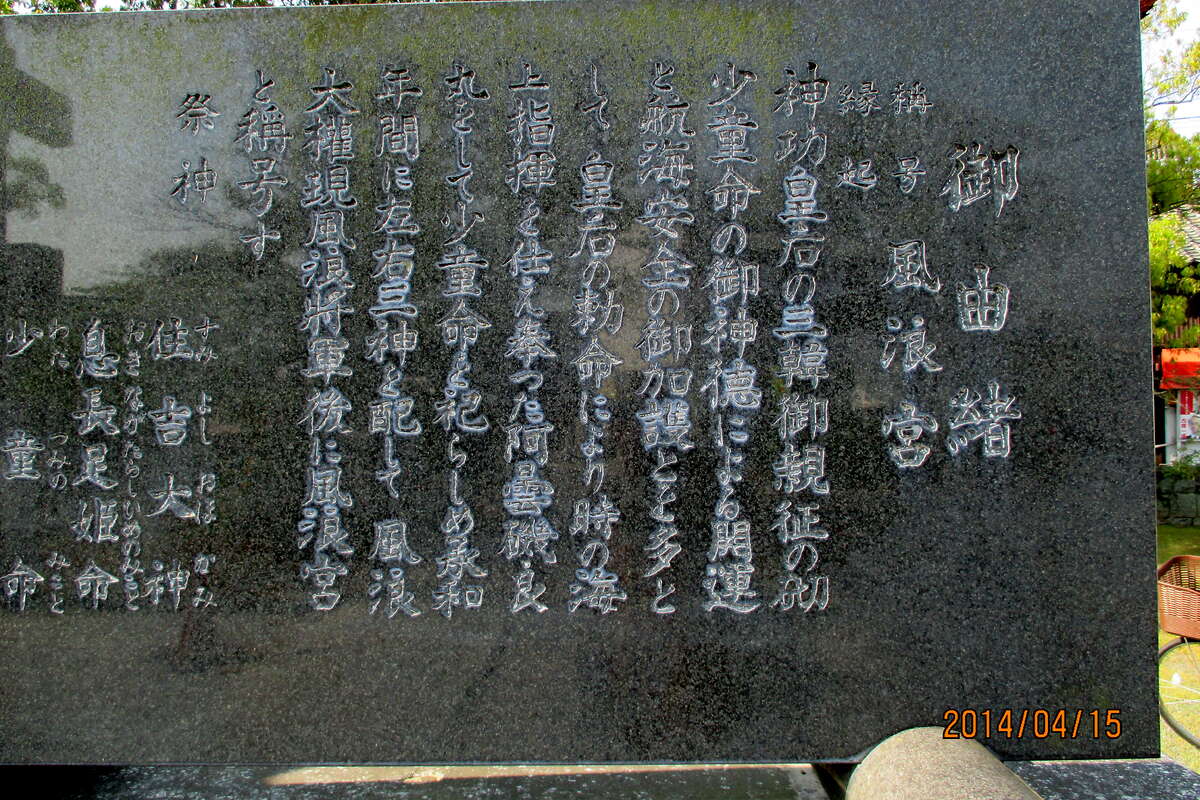 御由緒
稱号 風浪宮
縁起
神功皇后の三韓御親征の砌
少童命の御神德による開運
と航海安全の御加護とを多と
して 皇后の勅命により時の海
上指揮を仕え奉った阿曇磯良
丸をして少童命を祀らしめ承和
年間に左右三神を配して 風浪
大權現風浪将軍後に風浪宮
と稱号す
祭神
すみよしおほかみ
住吉大神
おきながたらしひめのみこと
息長足姫命
わたつみのみこと
少童命
2014/04/15